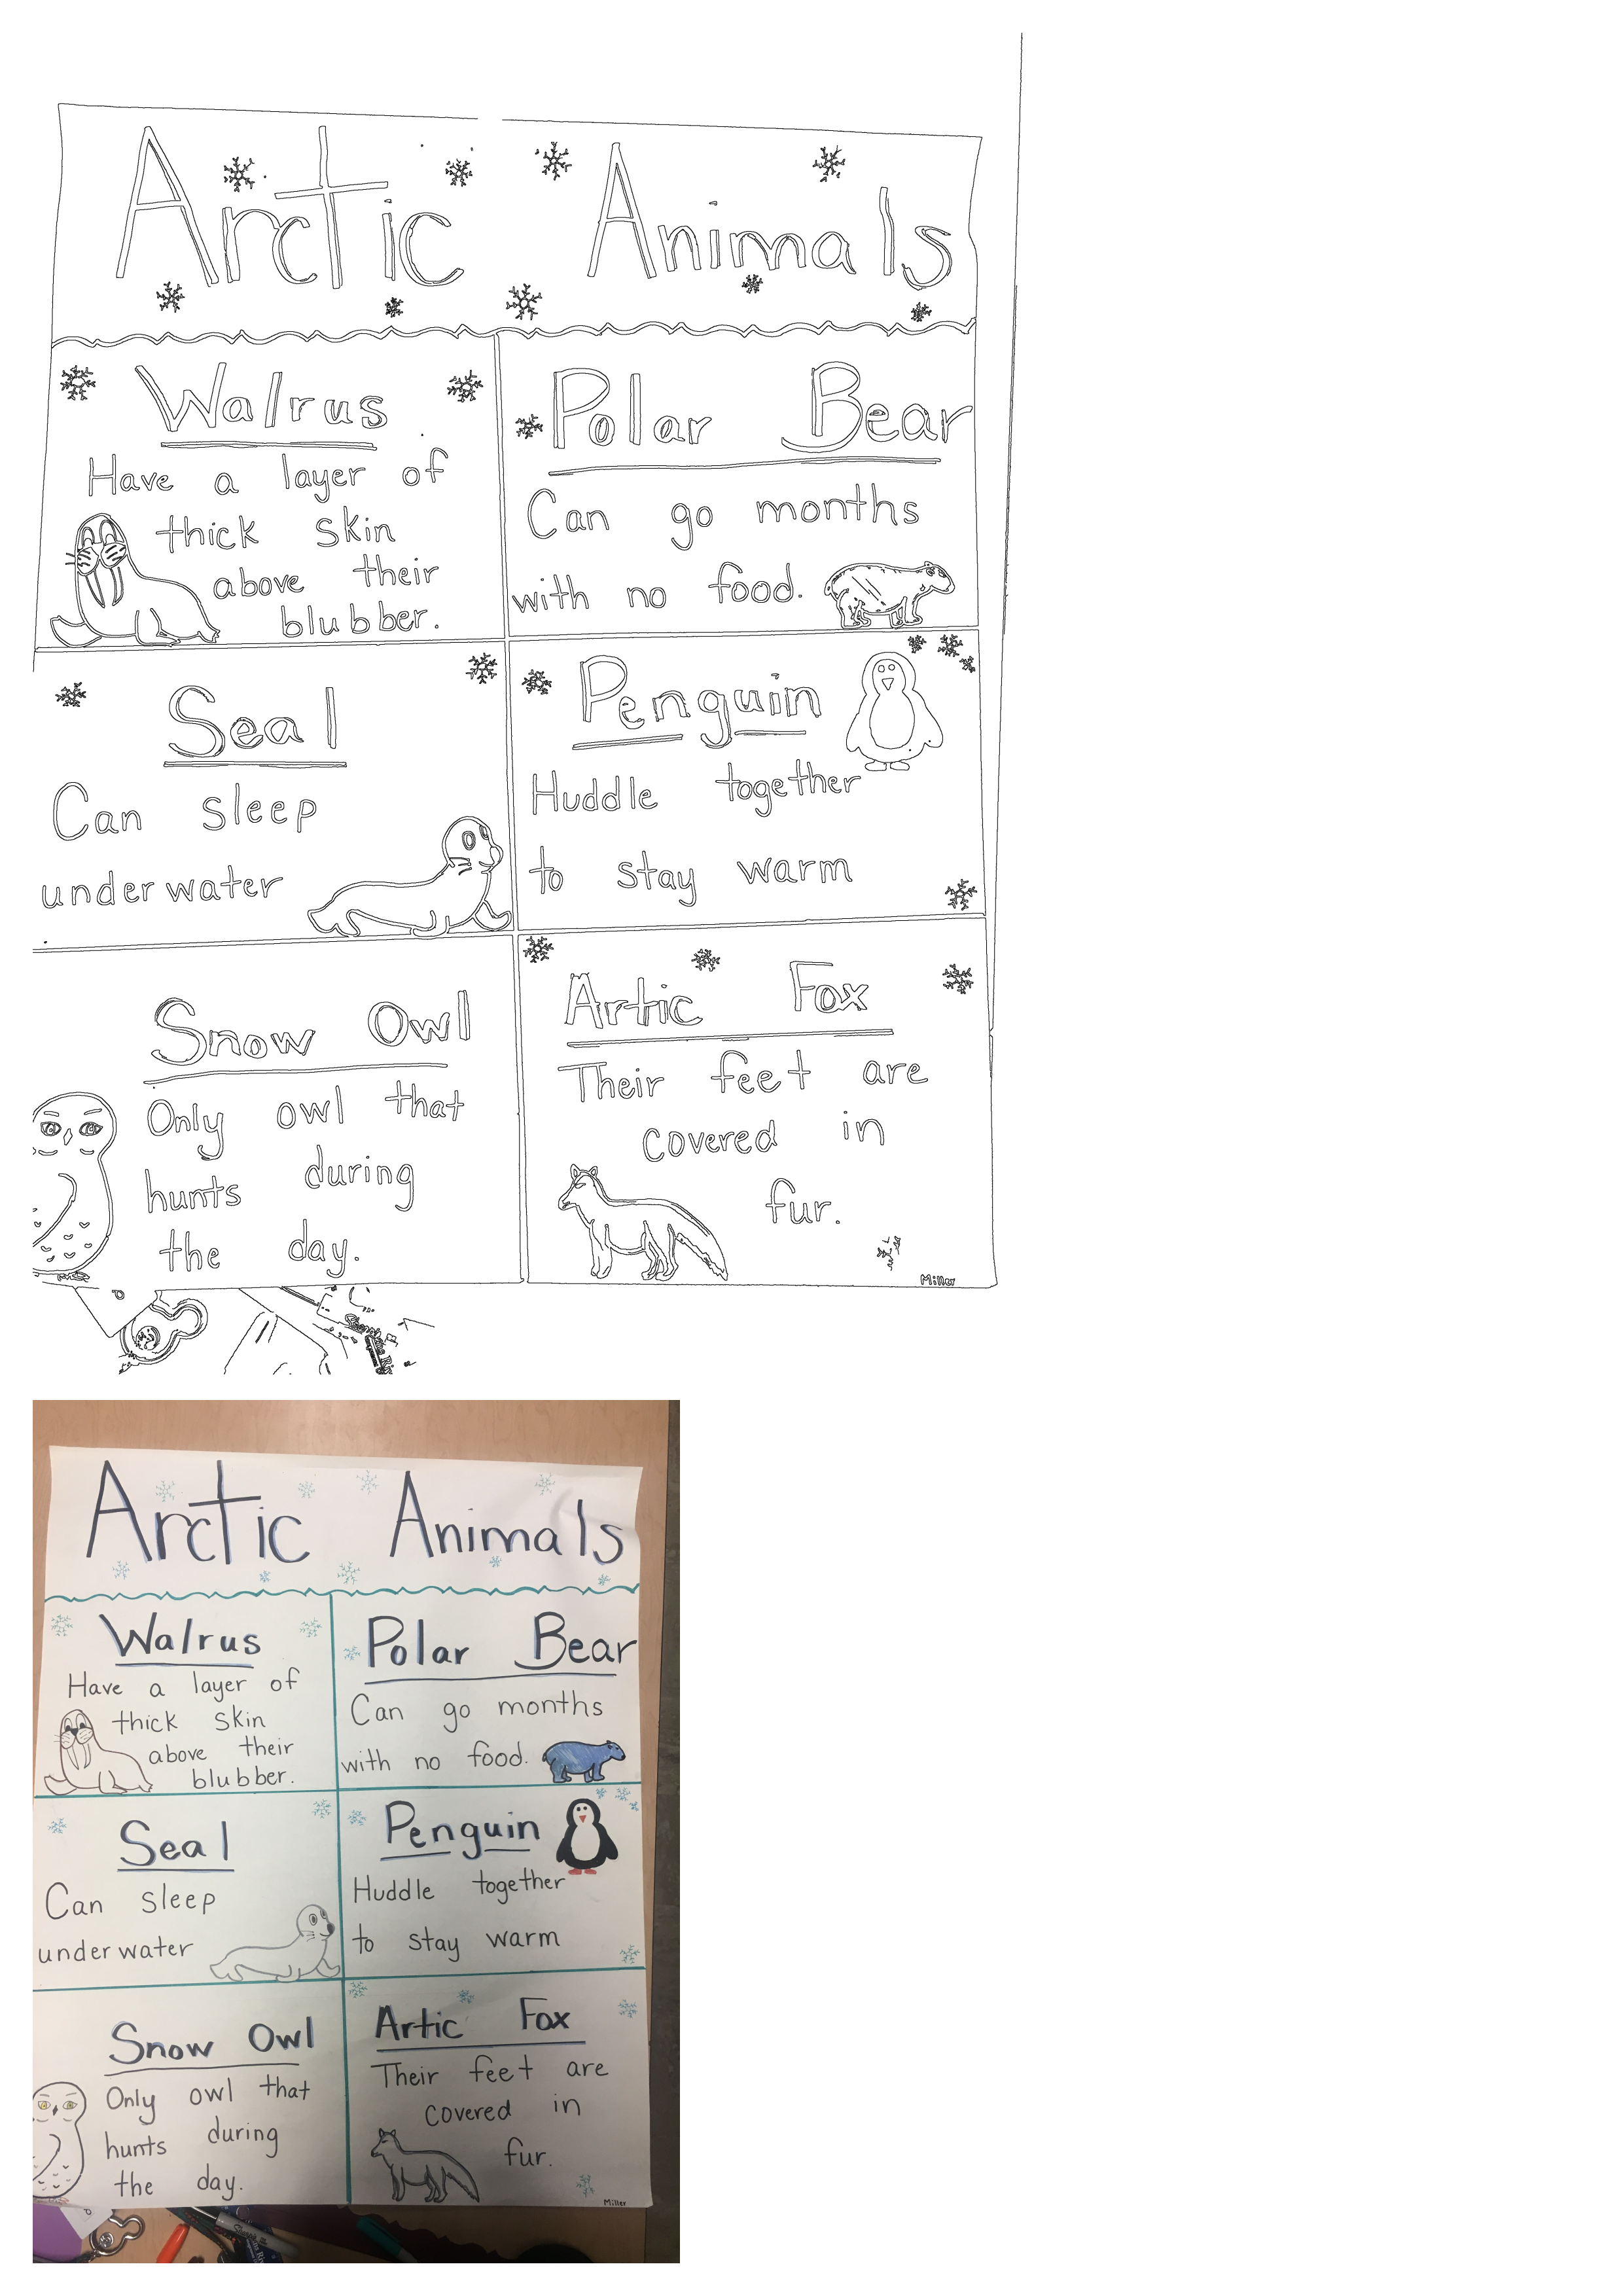 Arctic Animals
Walrus
Have a layer of
thick skin
above their
blubber.
Polar Bear
Can go months
with no food.
Seal
Can sleep
underwater
Penguin
Huddle together
to stay warm
Snow Owl
Only owl that
hunts during
the day.
Artic Fox
Their feet are
covered in
fur.
Miller
Arctic Animals
Walrus
Have a layer of
thick skin
above their
blubber.
Polar Bear
Can go months
with no food.
Seal
Can sleep
underwater
Penguin
Huddle together
to stay warm
Snow Owl
Only owl that
hunts during
the day.
Artic Fox
Their feet are
covered in
fur.
Miller